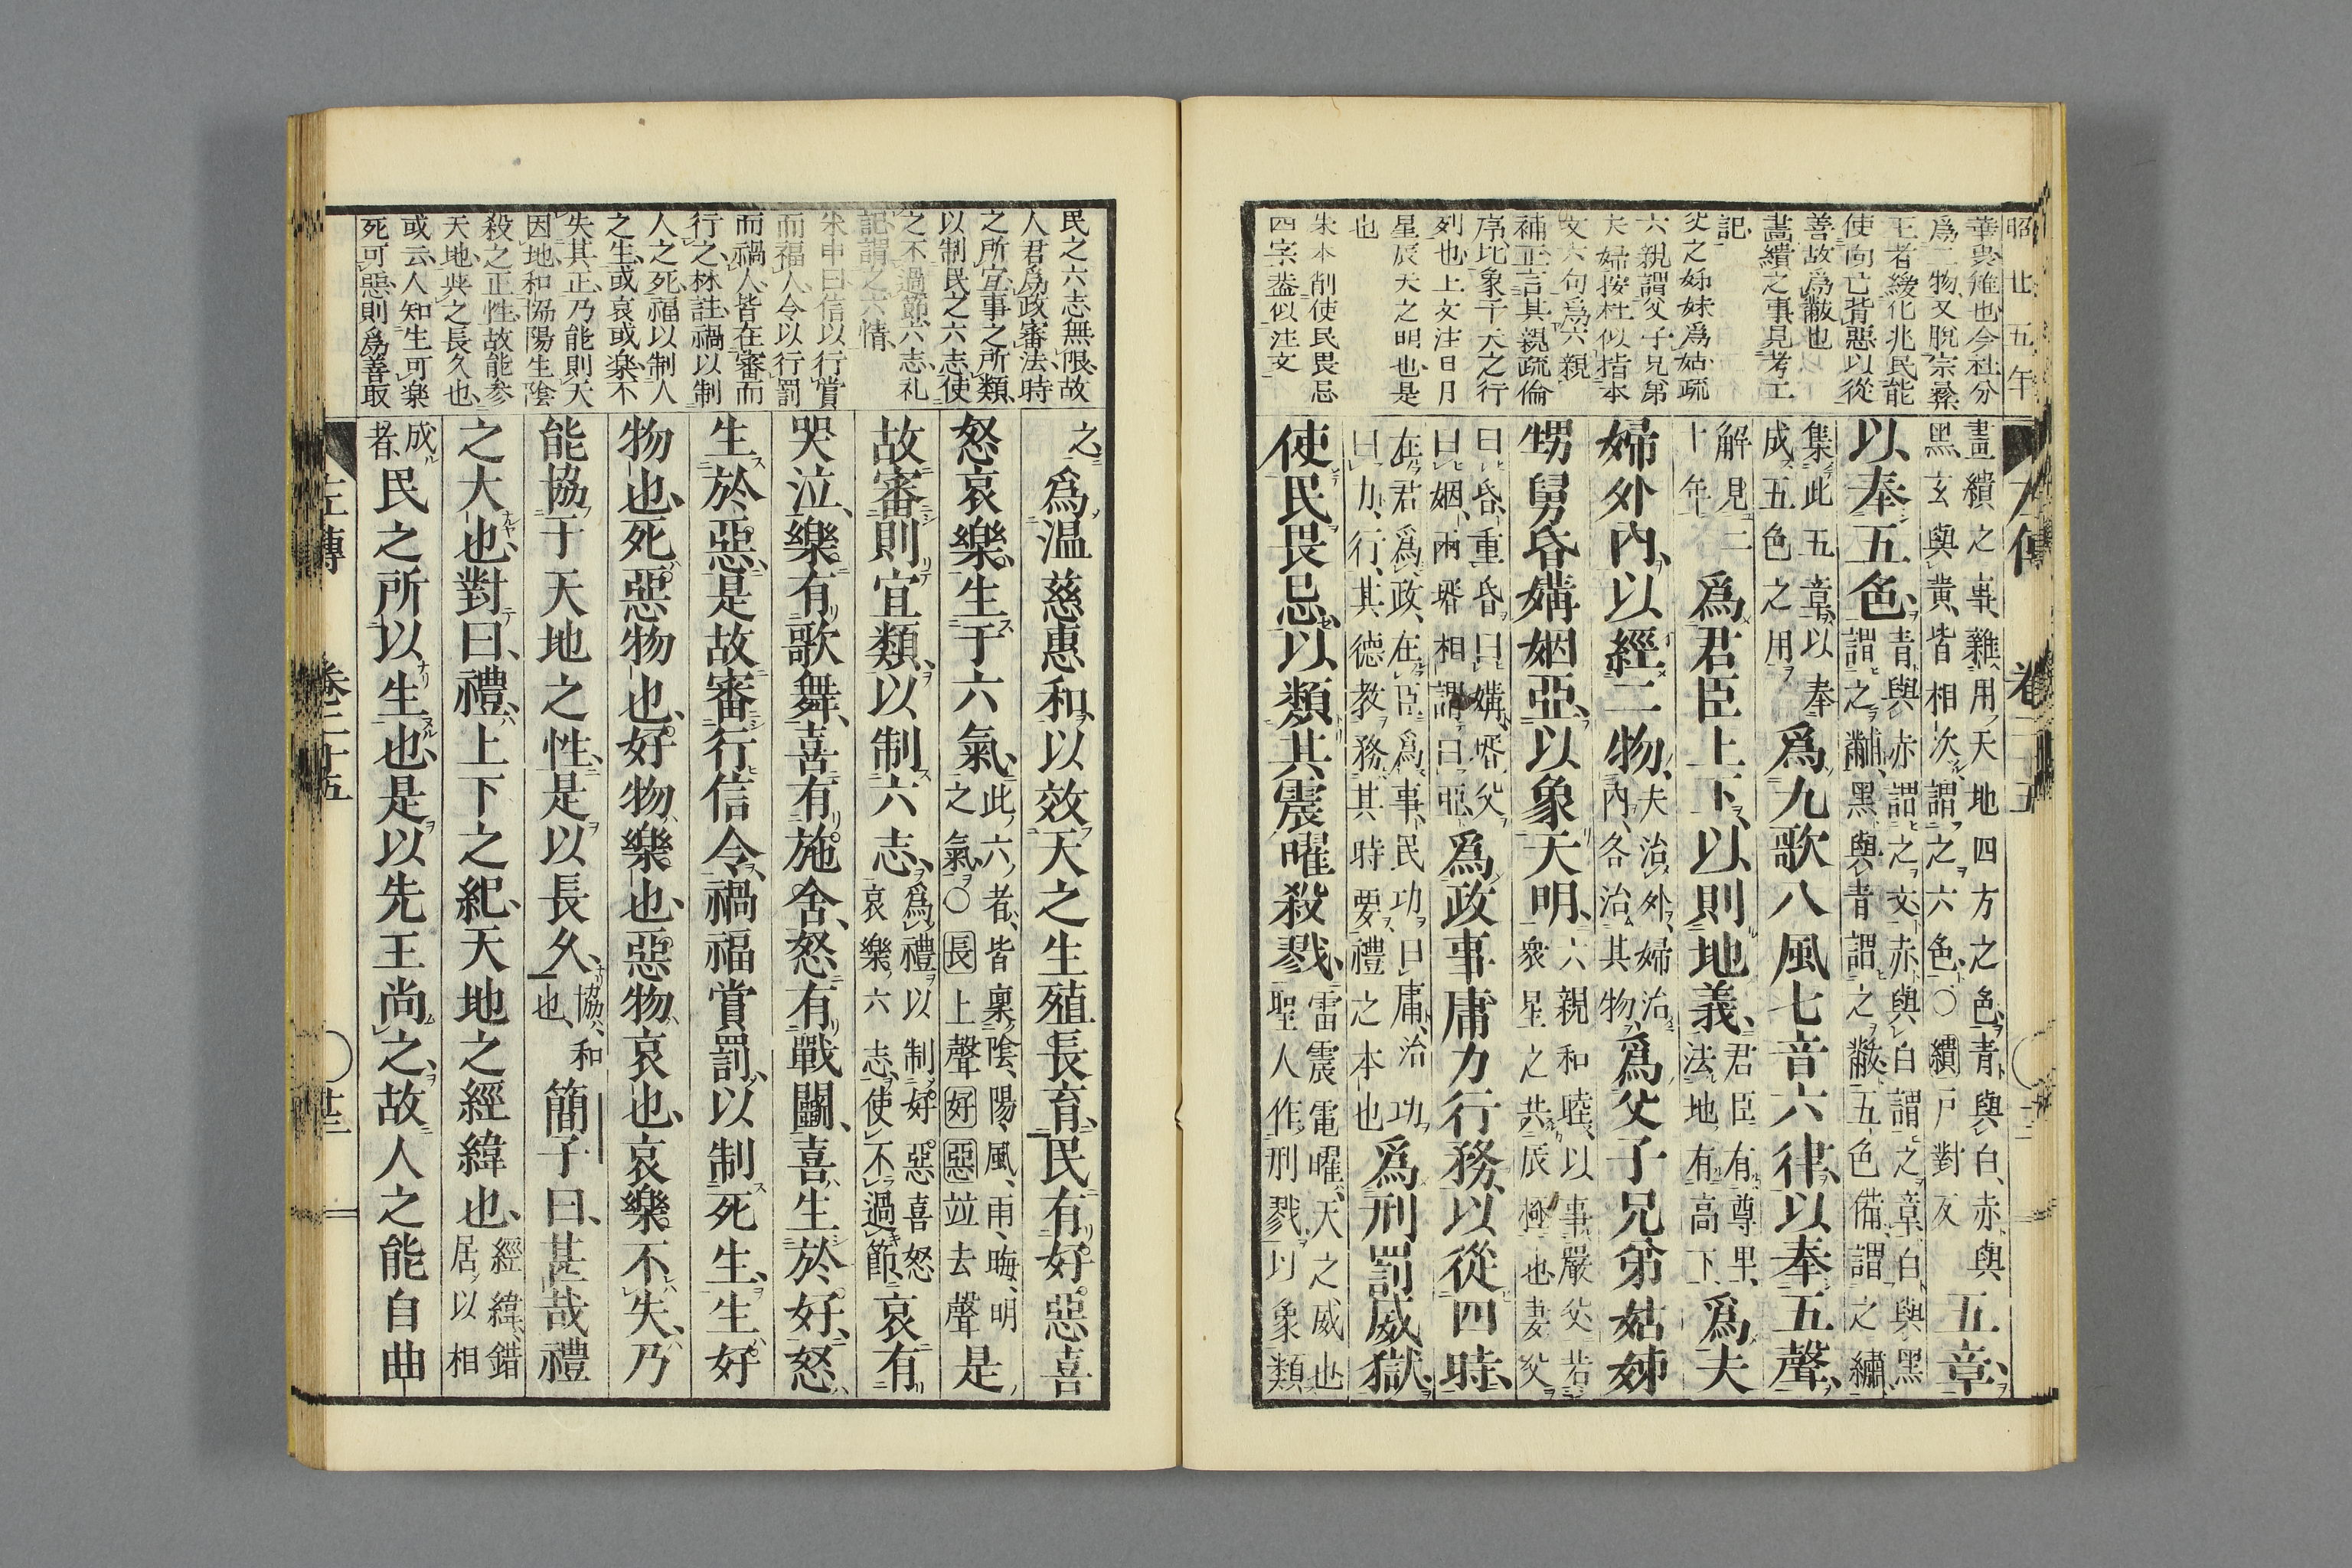 昭廿五年
華與雉也今社分
爲二物又脫宗彛
王者綏化兆民能
使向亡背惡以從
善故爲黻也
畫繢之事見考工
記
父之姊妹爲姑疏
六親謂父子兄弟
夫婦按杜似指本
文六句爲六親
補正言其親疏倫
序比象于天之行
列也上文注日月
星辰天之明也是
也
朱本削使民畏忌
四字盖似注文
畫繢之事雜用天地四方之色青與白赤與
黑玄與黃皆相次謂之六色○繢戸對反
五章
以奉五色
青與赤謂之文赤與白謂之章白與黑
謂之黼黑與青謂之黻五色備謂之繡
集此五章以奉
成五色之用
爲九歌八風七音六律以奉五聲
解見二
十年
爲君臣上下以則地義
君臣有尊卑
法地有高下
爲夫
婦外內以經二物
夫治外婦治
內各治其物
爲父子兄弟姑姊
甥舅昏媾姻亞以象天明
六親和睦以事嚴父若
衆星之共辰極也妻父
曰昏重昏曰媾壻父
曰姻兩壻相謂曰亞
爲政事庸力行務以從四時
在君爲政在臣爲事民功曰庸治功
曰力行其德教務其時要禮之本也
爲刑罰威獄
使民畏忌以類其震曜殺戮
雷震電曜天之威也
聖人作刑戮以象類
左傳 卷二十五
民之六志無限故
人君爲政審法時
之所宜事之所類
以制民之六志使
之不過節六志礼
記謂之六情
朱申曰信以行賞
而福人令以行罰
而禍人皆在審而
行之林註禍以制
人之死福以制人
之生或哀或楽不
失其正乃能則天
因地和協陽生陰
殺之正性故能参
天地與之長久也
或云人知生可楽
死可惡則爲善取
之
爲温慈惠和以效天之生殖長育民有好惡喜
怒哀樂生于六氣
此六者皆稟陰陽風雨晦明
之氣○長上聲好惡竝去聲
是
故審則宜類以制六志
爲禮以制好惡喜怒
哀樂六志使不過節
哀有
哭泣樂有歌舞喜有施舍怒有戰鬭喜生於好怒
生於惡是故審行信令禍福賞罰以制死生生好
物也死惡物也好物樂也惡物哀也哀樂不失乃
能協于天地之性是以長久
協和
也
簡子曰甚哉禮
之大也對曰禮上下之紀天地之經緯也
經緯錯
居以相
成
者
民之所以生也是以先王尚之故人之能自曲
左傳 卷二十五